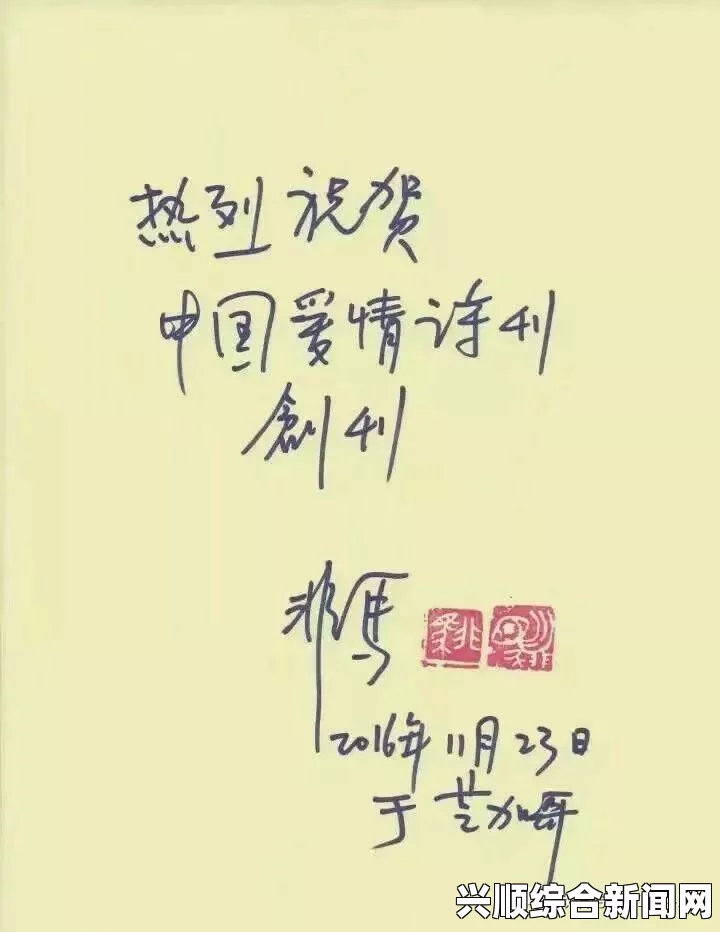 热烈祝贺
中国爱情诗刊
創刊
非馬
2016年11月23日
于芝加哥
兴顺综合新闻网